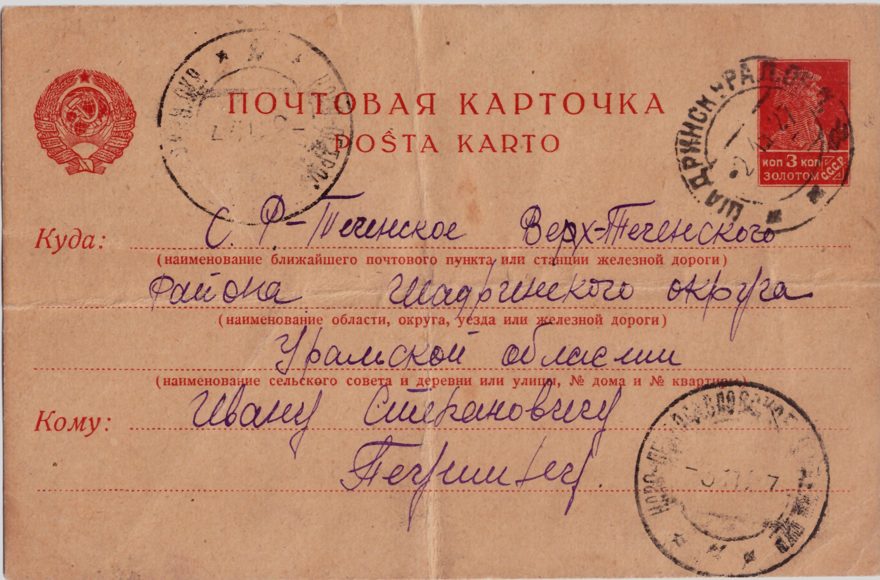 ПОЧТОВАЯ КАРТОЧКА
POŜTA KARTO
ШАДРИНСК УРАЛ.ОБЛ.
КОП 3 КОП
ЗОЛОТОМ
С.С.С.Р.
Куда: С. Р-Теченское Верх-Теченского
(наименование ближайшего почтового пункта или станции железной дороги)
Района Шадринского округа
(наименование области, округа, уезда или железной дороги)
Уральской области
(наименование сельского совета и деревни или улицы, № дома и № квартиры)
Кому: Ивану Степановичу